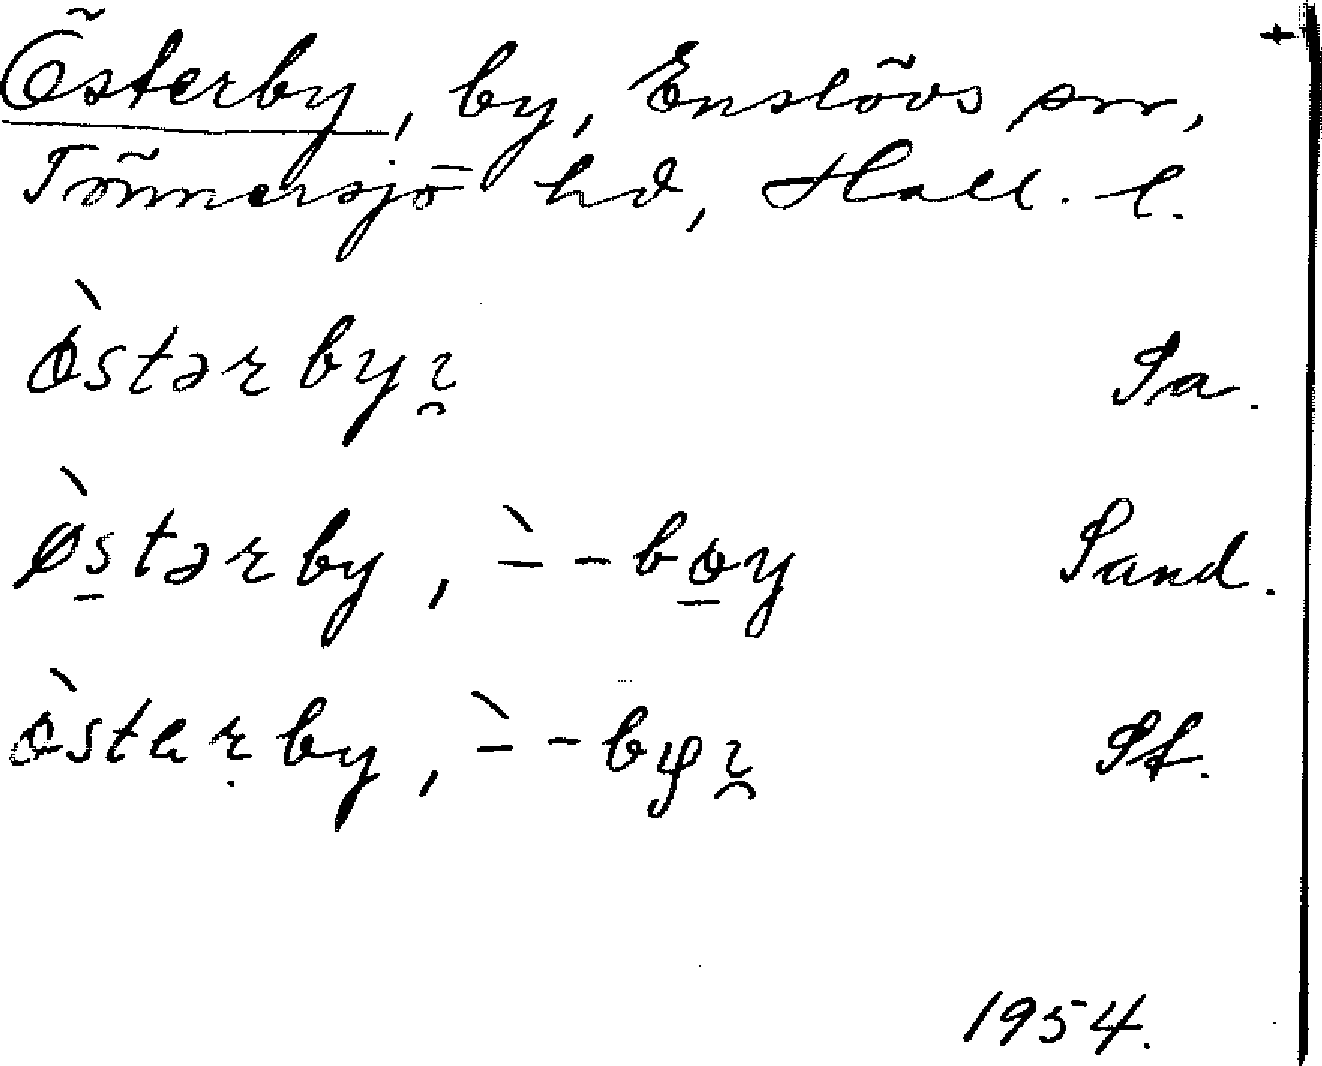 Österby, by, Enslövs sn, +
Tönnersjö hd, Hall. l.
ö̀stərbyɪ̯ Sa.
ø̀s̠tərby, ̀- -bo̠y Sand.
ö̀stɐṛby, ̀- -bφɪ̯ Sf.
1954.